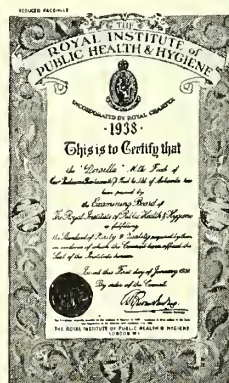 REDUCED FACSIMILE
THE
ROYAL INSTITUTE of
PUBLIC HEALTH & HYGIENE
INCORPORATED BY ROYAL CHARTER
·1938·
This is to Certify that
the "Dorsella" Milk Foods of
has been passed by
the Examining Board of
The Royal Institute of Public Health & Hygiene
as fulfilling
the Standard of Purity & Quality required by them
in evidence of which the Council have affixed the
Seal of the Institute hereon
this First day of January 1938
By order of the Council
THE ROYAL INSTITUTE OF PUBLIC HEALTH & HYGIENE
LONDON W1